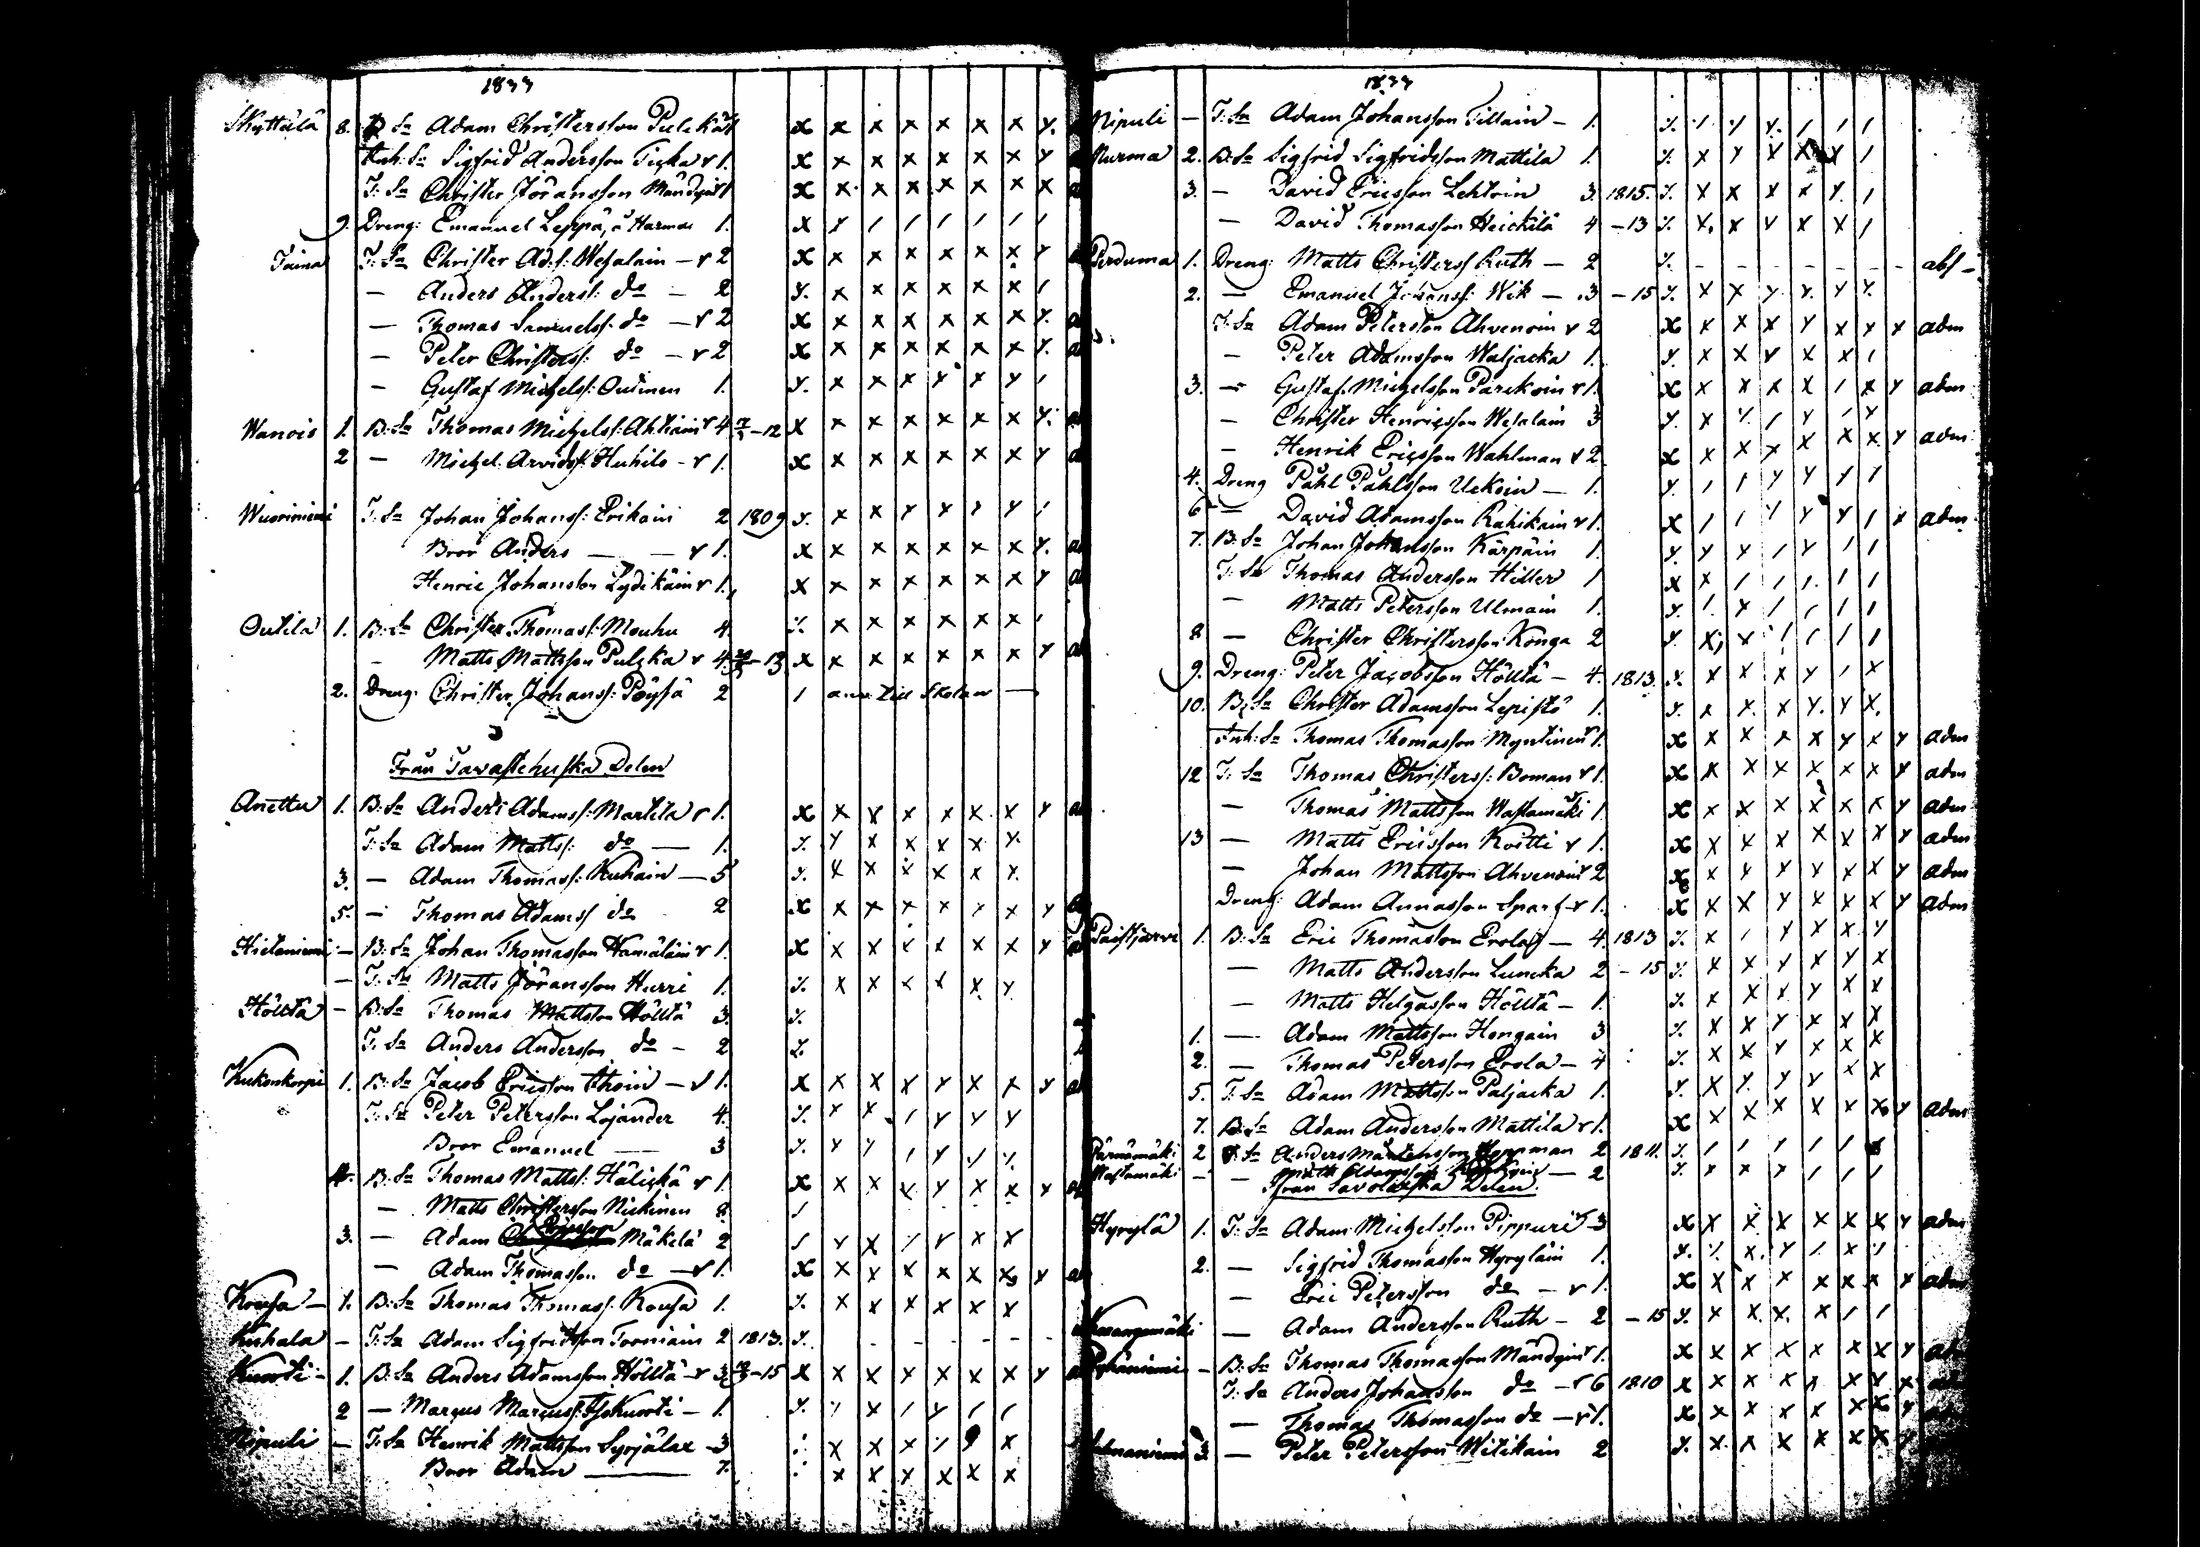 1833
Skyttälä 8. B. Sn Adam Christersson Pulckä 1
Inh: Sn Sigfrid Andersson Ticka v 1.
T: Sn Christer Jöransson Mändyin v 1
9. Dreng: Emanuel Leppä, å Harmaa 1.
Taina T: Sn Christer Ad:s: Wesalain – v 2
— Anders Anderss: do – 2
— Thomas Samuelss: do – v 2
— Peter Christerss: do – v 2
— Gustaf Michelss: Outinen 1.
Wanois 1. B: Sn Thomas Michelss: Ahtiain v 4 – 12
2 — Michel Arvidss: Huhilo – v 1.
Wuoriniemi T: Sn Johan Johanss: Erikain 2 1809
Bror Anders — — v 1.
Henric Johansson Lydikäin v 1.
Outila 1. B: Sn Christer Thomass: Mouhu 4.
– Matts Mattsson Pulcka v 4 – 13
2. Dreng: Christer Johanss: Pöysä 2 1 till Skolan —
Från Tavastehuska Delen
Anettu 1. B: Sn Anders Adamss: Martila v 1.
T: Sn Adam Matts: do — 1.
3. — Adam Thomass: Kuhain — 5
5. — Thomas Adamss do 2
Hietaniemi – B: Sn Johan Thomasson Hämäläin v 1.
– T: Sn Matts Jöransson Hurri 1.
Hölttä – B: Sn Thomas Mattsson Hölttä 3.
T. Sn Anders Andersson do – 2
Kukonkorpi 1. B: Sn Jacob Ericsson – v 1.
T: Sn Peter Petersson Lojander 4.
Bror Emanuel — 3
B: Sn Thomas Matts: Hälickä v 1.
– Matts Christersson Niskinen 2
3. — Adam Ericsson Mäkelä 2
— Adam Thomasson do – v 1.
Kousa – 1. B: Sn Thomas Thomass: Kousa 1.
Kuhala – T: Sn Adam Sigfridsson Torniain 2 1813.
Kuorti – 1. B: Sn Anders Adamsson Hölttä – v 3 – 15
2 — Marcus Marcuss: Isokuorti – 1.
Nipuli – T: Sn Henrik Mattsson Syrjälax – 3
Bror Adam ——— 7.
1833
Nipuli — T: Sn Adam Johansson Tillain – 1.
Nurma 2. B: Sn Sigfrid Sigfridsson Mattila 1.
3. — David Ericsson Lehtoin 3. 1815.
— David Thomasson Heickilä 4 – 13
Perduma 1. Dreng: Matts Christerss Ruth — 2 abs –
2. — Emanuel Johanss: Wik — 3 – 15
T: Sn Adam Petersson Ahvenoin v 2 adm
— Peter Adamsson Waljacka 1.
3. — Gustaf Michelsson Parikoin v 1. adm
— Christer Henricsson Wesalain 3
— Henrik Ericsson Wahlman v 2 adm
4. Dreng Påhl Påhlsson Uekoin — 1.
6 — David Adamsson Rahikain v 1. adm
7. B: Sn Johan Johansson Kärpäin 1.
T: Sn Thomas Andersson Hiller 1
— Matts Petersson Ulmain 1.
8 — Christer Christersson Konga 2
9. Dreng: Peter Jacobsson Hölttä – 4. 1813.
10. B: Sn Christer Adamsson Lepistö 1.
Inh: Sn Thomas Thomasson Myntinen v 1. adm
12 T: Sn Thomas Christerss: Boman v 1. adm
— Thomas Mattsson Wastamäki 1 adm
13 — Matts Ericsson Kostti v 1. adm
— Johan Mattsson Ahvenoin v 2 adm
Dreng: Adam Annasson Sparf v 1. adm
Paistjärvi 1. B: Sn Eric Thomasson Erola — 4. 1813
— Matts Andersson Luncka 2 – 15
— Matts Helgasson Hölttä – 1.
1. — Adam Mattsson Hongain 3
2. — Thomas Petersson Erola – 4
5. T: Sn Adam Mattsson Paljacka 1.
7. B: Sn Adam Andersson Mattila v 1. adm
Pärnämäki 2 T: Sn Anders Mårtensson Herman 2 1811.
Wastamäki – — Matts Adamsson — 2
Ifrån Savolaxska Delen.
Hyrylä 1. T: Sn Adam Michelsson Pippuri v 3 adm
2. — Sigfrid Thomasson Hyryläin 1.
— Eric Petersson do – v 1. adm
Kovangomäki — Adam Andersson Ruth – 2 – 15
– B: Sn Thomas Thomasson Mändyin v 1. adm
T: Sn Anders Johansson do – v 6 1810
— Thomas Thomasson do – v 1.
3. — Peter Petersson Witikain 2